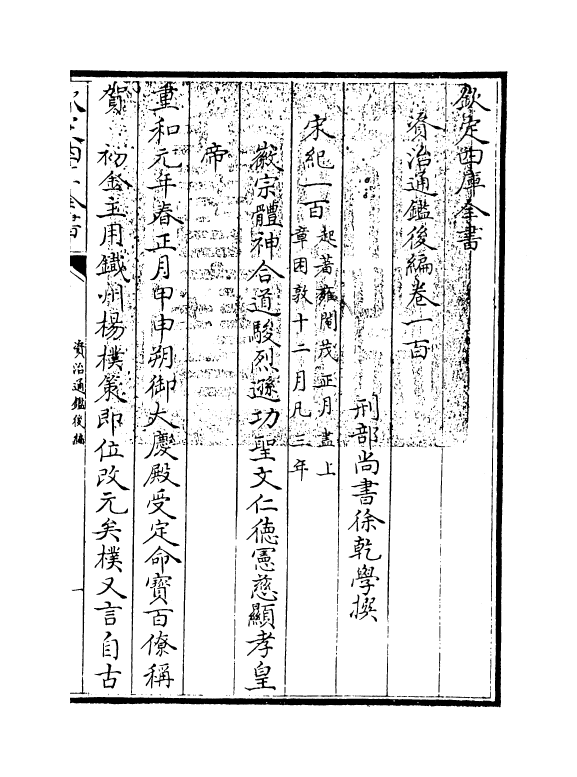 欽定四庫全書
資治通鑑後編卷一百
刑部尚書徐乾學撰
宋紀一百
起著雍閹茂正月盡上
章困敦十二月凡三年
徽宗體神合道駿烈遜功聖文仁德憲慈顯孝皇
帝
重和元年春正月甲申朔御大慶殿受定命寶百僚稱
賀 初金主用鐵州楊樸策即位改元矣樸又言自古
欽定四庫全書
資治通鑑後編
一